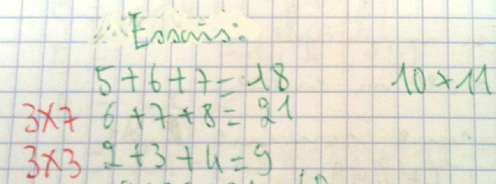 Essais:
5+6+7=18 10+11
3x7 6+7+8=21
3x3 2+3+4=9